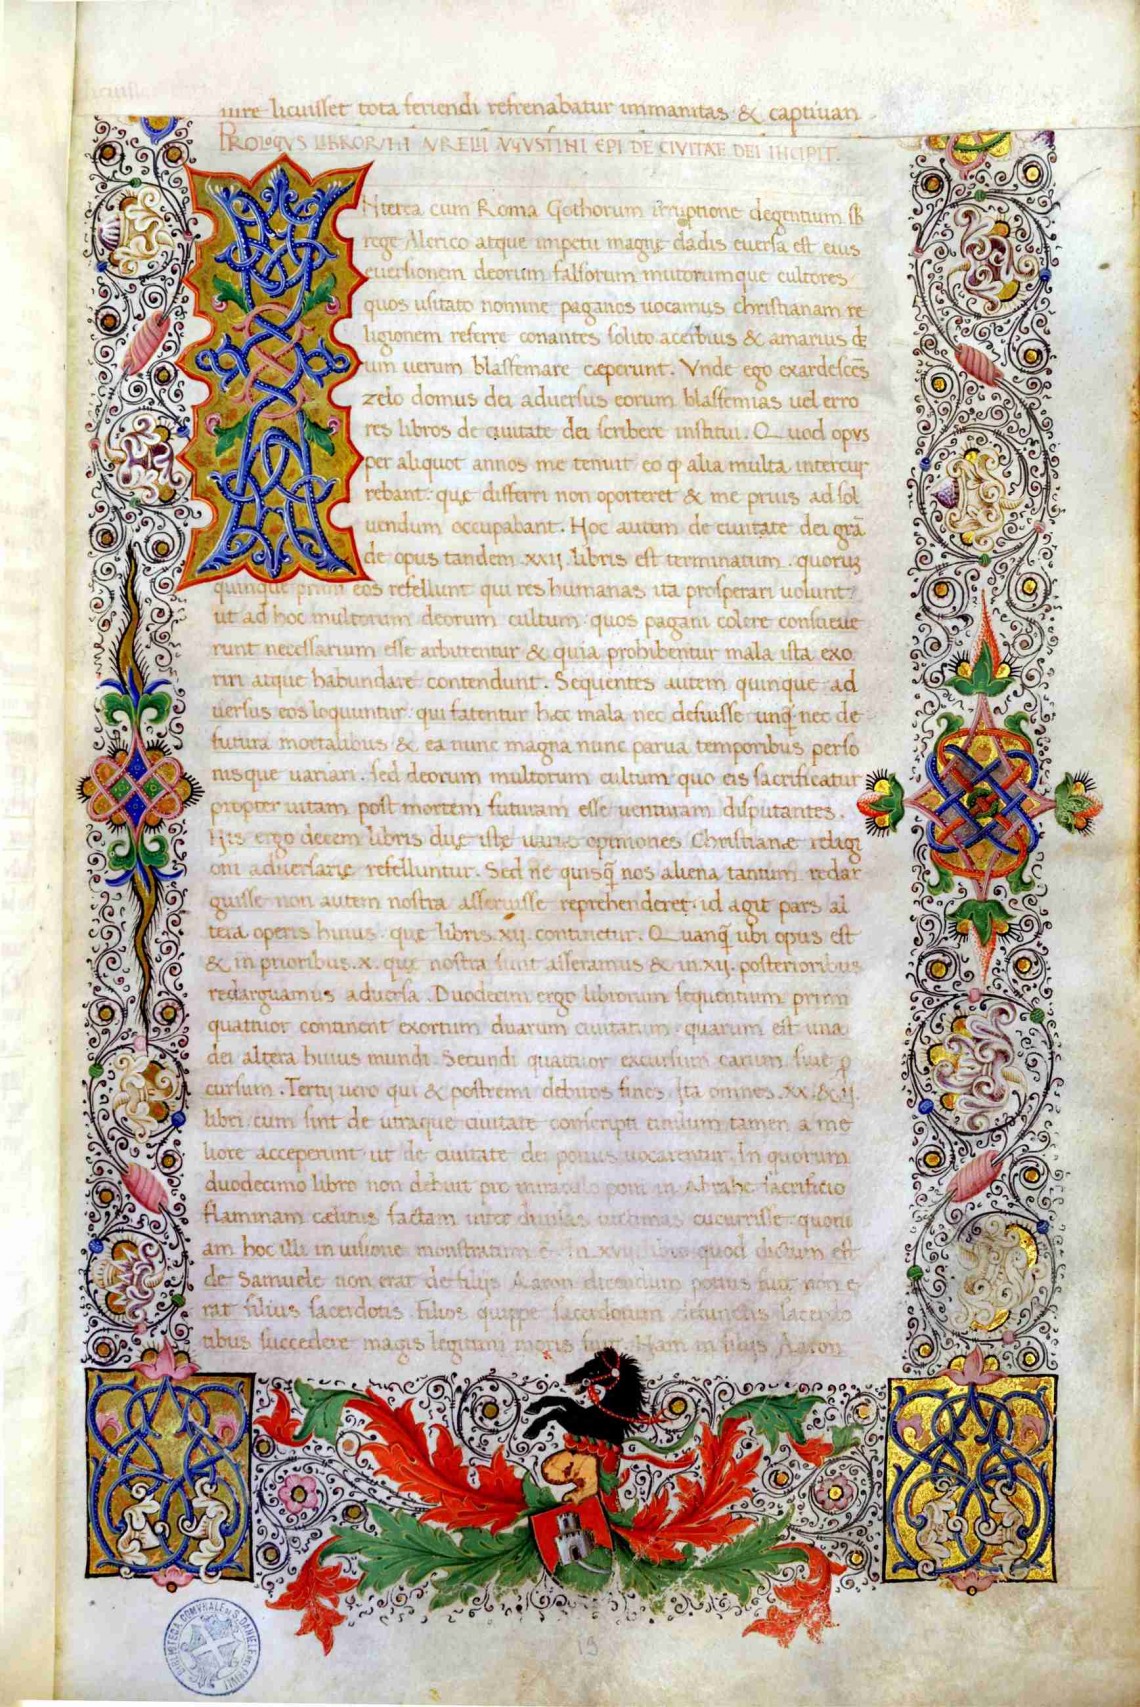 iure licuisset tota feriendi refrenabatur immanitas & captiuan
PROLOGVS LIBRORVM AVRELII AVGVSTINI EPI DE CIVITAE DEI INCIPIT.
INterea cum Roma Gothorum irruptione degentium sb
rege Alerico atque impetu magnę cladis euersa est eius
euersionem deorum falsorum mutorumque cultores
quos usitato nomine paganos uocamus christianam re
ligionem referre conantes solito acerbius & amarius de
um uerum blasfemare cæperunt. Vnde ego exardescēs
zelo domus dei aduersus eorum blasfemias uel erro
res libros de ciuitate dei scribere institui. Quod opvs
per aliquot annos me tenuit eo q alia multa intercur
rebant: quę differri non oporteret & me prius ad sol
uendum occupabant. Hoc autem de ciuitate dei grā
de opus tandem .xxij. libris est terminatum. quoruꝫ
quinque primi eos refellunt qui res humanas ita prosperari uolunt
ut ad hoc multorum deorum cultum quos pagani colere consueue
runt necessarium esse arbitrentur & quia prohibentur mala ista exo
riri atque habundare contendunt. Sequentes autem quinque ad
uersus eos loquuntur: qui fatentur hæc mala nec defuisse unq̄ nec de
futura mortalibus & ea nunc magna nunc parua temporibus perso
nisque uariari. sed deorum multorum cultum quo eis sacrificatur
propter uitam post mortem futuram esse uenturam disputantes.
His ergo decem libris duę istę uarię opiniones Christianæ religi
oni aduersarię refelluntur. Sed ne quisq̄ nos aliena tantum redar
guisse non autem nostra asseruisse reprehenderet. id agit pars al
tera operis huius: que libris .xij. continetur. Quanq̄ ubi opus est
& in prioribus .x. quę nostra sunt asseramus & in .xij. posterioribus
redarguamus aduersa. Duodecim ergo librorum sequentium primi
quatuor continent exortum duarum ciuitatum. quarum est una
dei altera huius mundi. Secundi quatuor excursum earum siue p
cursum. Tertij uero qui & postremi debitos fines. Ita omnes .xx.&.ij.
libri cum sint de utraque ciuitate conscripti titulum tamen a me
liore acceperunt ut de ciuitate dei potius uocarentur. In quorum
duodecimo libro non debuit pro miraculo poni in Abrahe sacrificio
flammam cælitus factam inter diuisas uictimas cucurrisse: quoni
am hoc illi in uisione monstratum ē. In .xvij. libro quod dictum est
de Samuele non erat de filijs Aaron dicendum potius fuit non e
rat filius sacerdotis. Filios quippe sacerdotum defunctis sacerdo
tibus succedere magis legitimi moris fuit. Nam in filijs Aaron
19
BIBLIOTECA COMVNALE